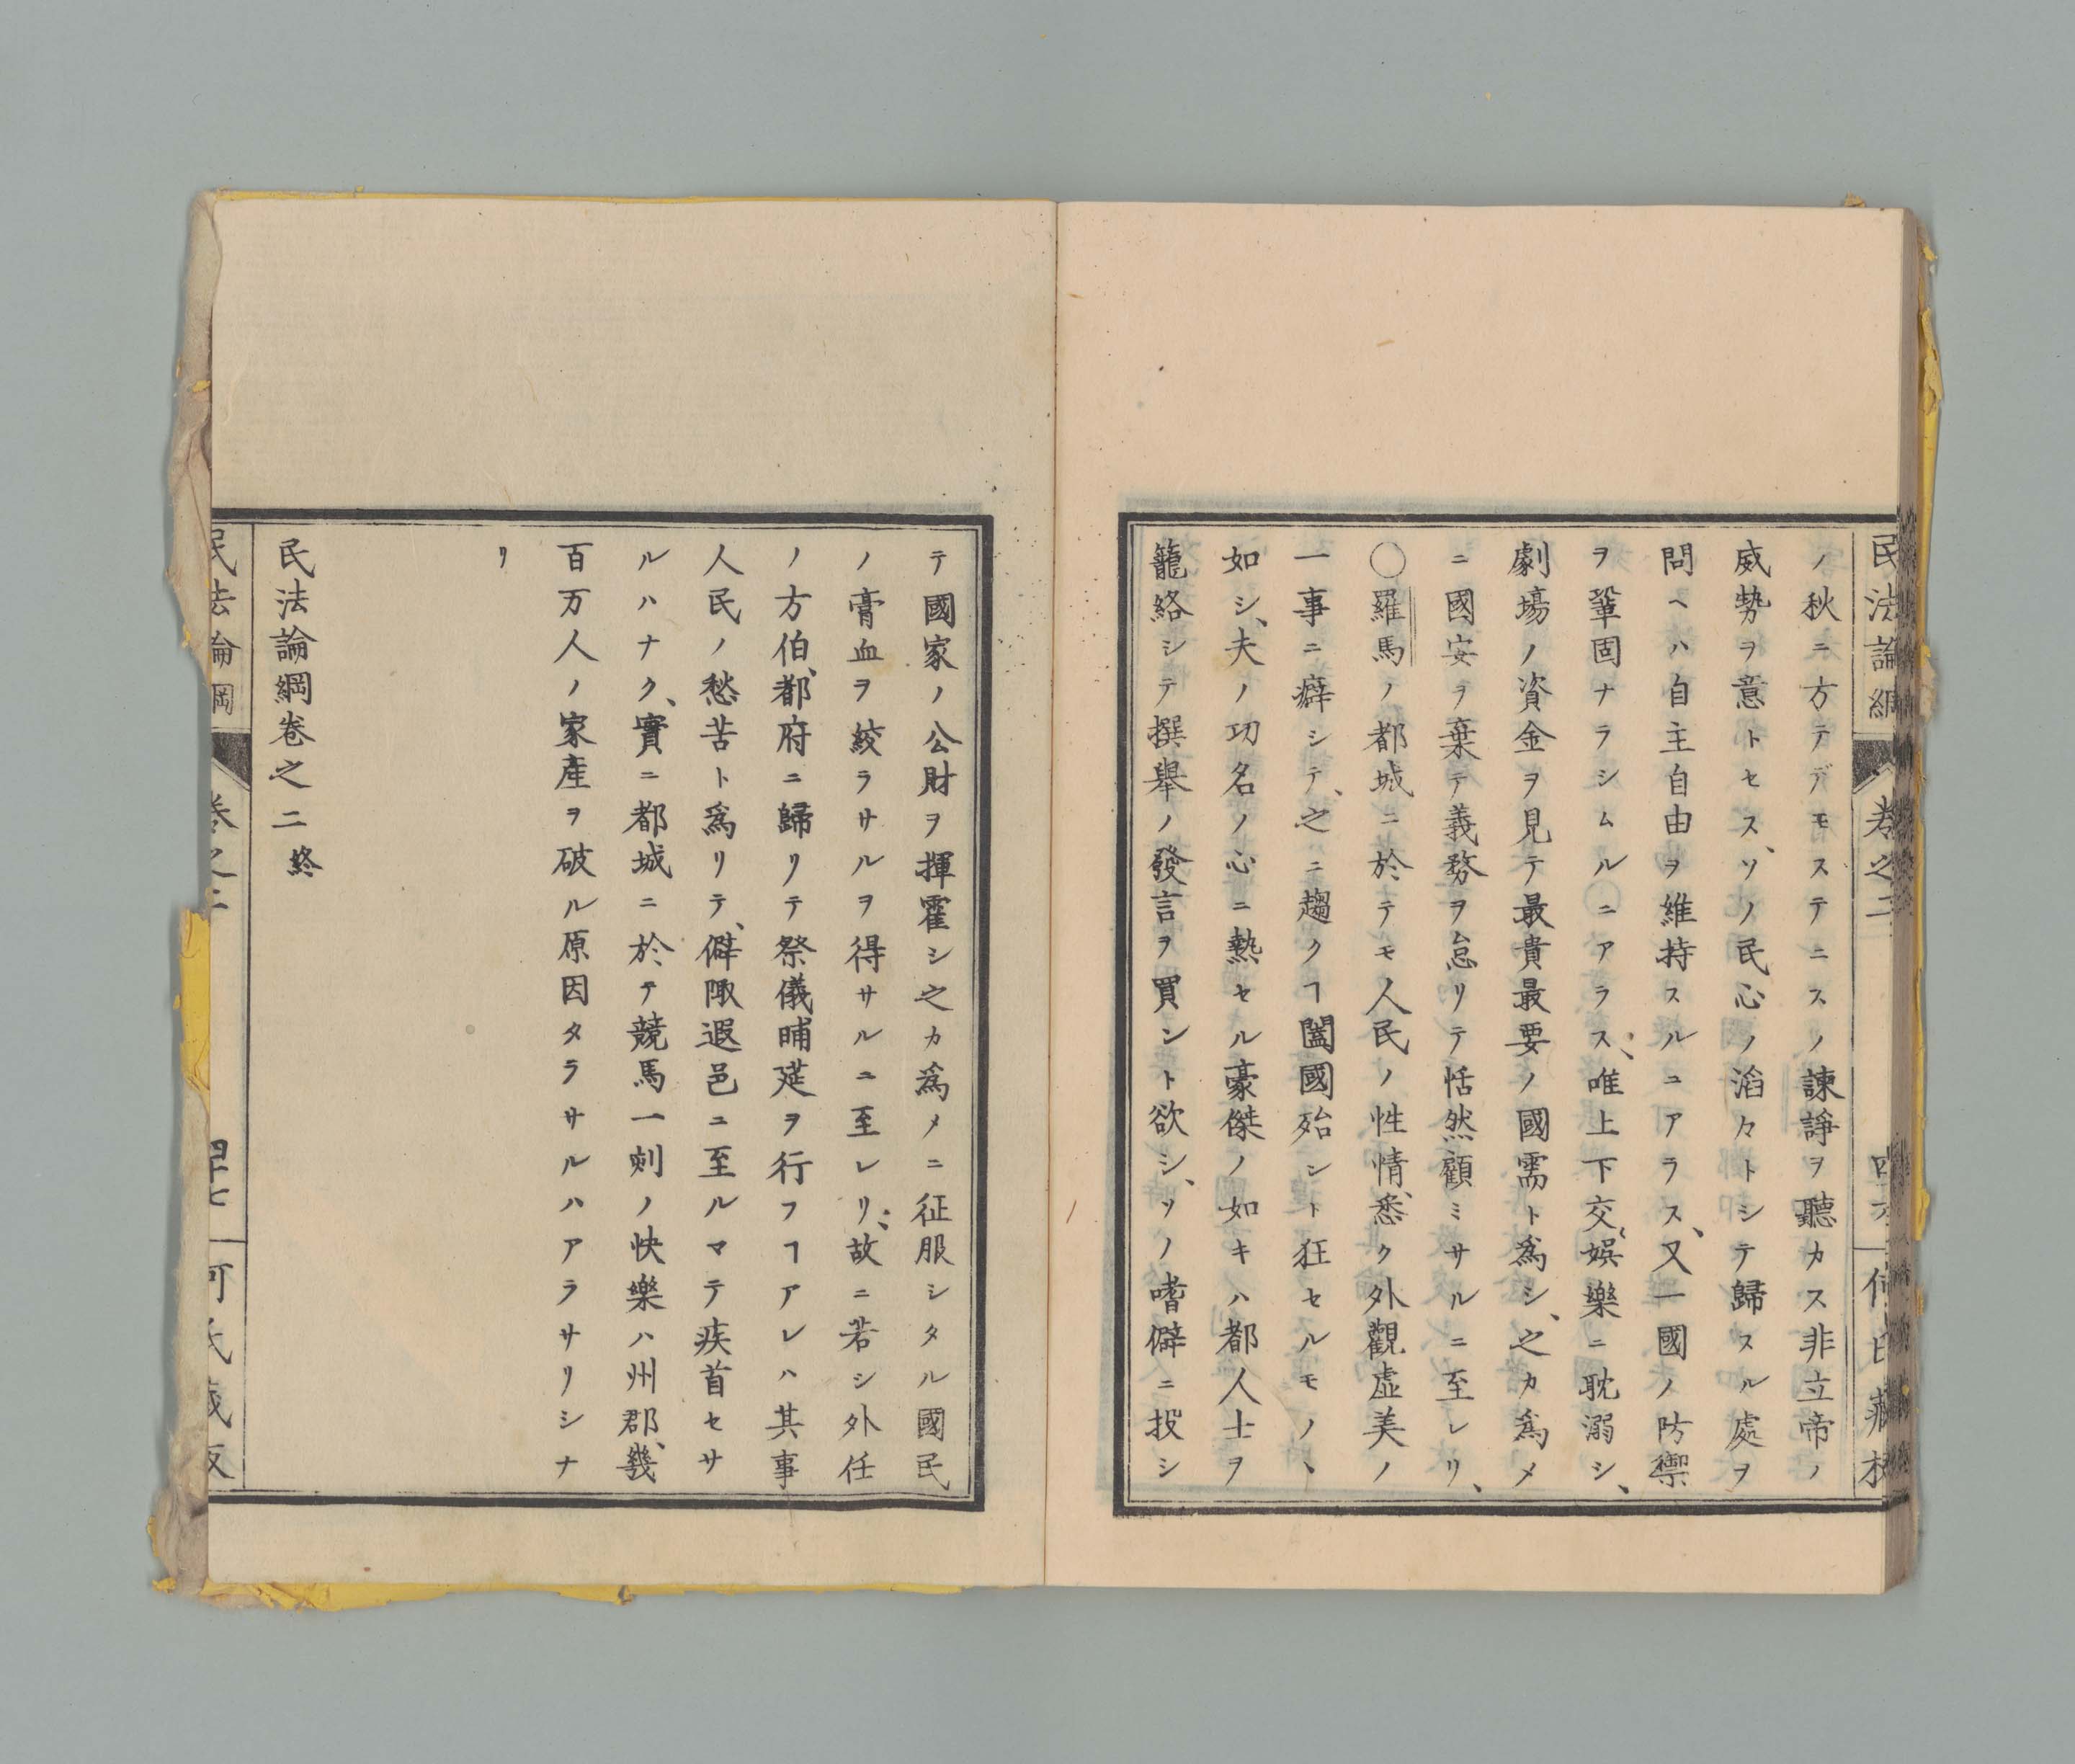 民法論綱　卷之二
ノ秋ニ方テデモステニスノ諫諍ヲ聽カス非立帝ノ
威勢ヲ意トセス、ソノ民心ノ滔々トシテ歸スル處ヲ
問ヘハ自主自由ヲ維持スルニアラス、又一國ノ防禦
ヲ鞏固ナラシムルニアラス、唯上下交、娯樂ニ耽溺シ、
劇塲ノ資金ヲ見テ最貴最要ノ國需ト爲シ、之カ爲メ
ニ國安ヲ棄テ義務ヲ怠リテ恬然顧ミサルニ至レリ、
〇羅馬ノ都城ニ於テモ人民ノ性情、悉ク外觀虛美ノ
一事ニ癖シテ、之ニ趨クヿ闔國殆ント狂セルモノヽ
如シ、夫ノ功名ノ心ニ熱セル豪傑ノ如キハ都人士ヲ
籠絡シテ撰擧ノ發言ヲ買ント欲シ、ソノ嗜僻ニ投シ
テ國家ノ公財ヲ揮霍シ之カ爲メニ征服シタル國民
ノ膏血ヲ絞ラサルヲ得サルニ至レリ、故ニ若シ外任
ノ方伯、都府ニ歸リテ祭儀晡莚ヲ行フヿアレハ其事
人民ノ愁苦ト爲リテ、僻陬遐邑ニ至ルマテ疾首セサ
ルハナク、實ニ都城ニ於テ競馬一刻ノ快樂ハ州郡、幾
百万人ノ家產ヲ破ル原因タラサルハアラサリシナ
リ
民法論綱卷之二終
民法論綱　卷之二　四十七　何氏藏版